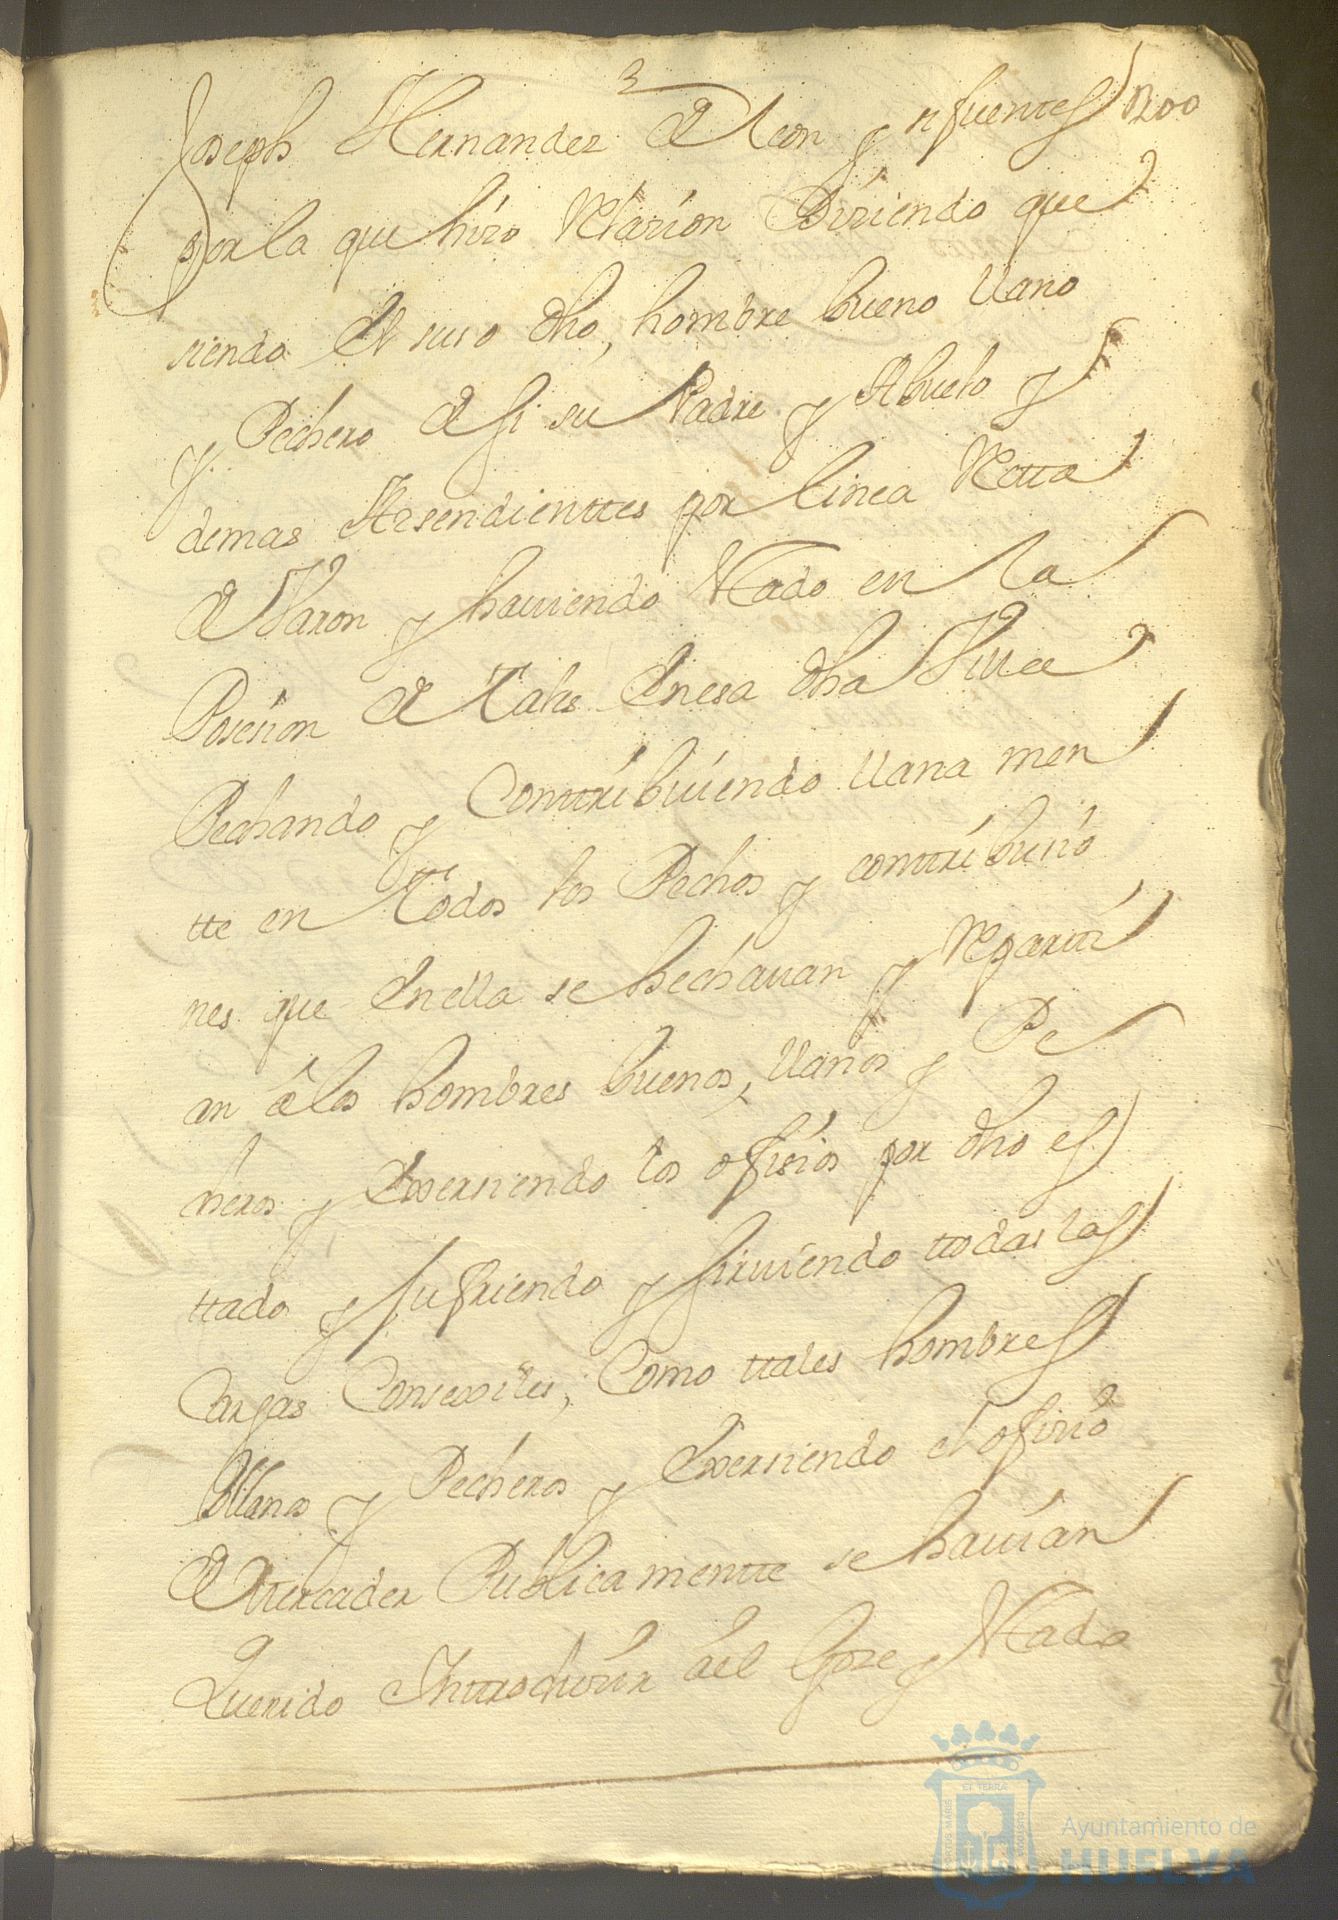 3
1200
Joseph Hernandez de Leon y sifuentes
por la que hizo Relazion Diziendo que
siendo el suso dho, hombre bueno llano
y Pechero de si su Padre y Abuelo y
demas Assendienttes por linea Rectta
de Varon y haviendo estado en la
Posesion de tales Enesa dha Villa
Pechando y Conttribuiendo llana men
tte en todos los Pechos y conttribusio
nes que Enella se hechavan y Repartti
an â los hombres buenos, llanos y Pe
cheros y Exersiendo los ofisios por dho es
ttado y sufriendo y sirviendo ttodas las
Cargas Consexiles, Como ttales hombres
llanos y Pecheros y Exersiendo el ofizio
de Mercader Publicamentte se havian
Querido Inttroduzir âel Goze y estado
ET TERRA
Ayuntamiento de
HUELVA